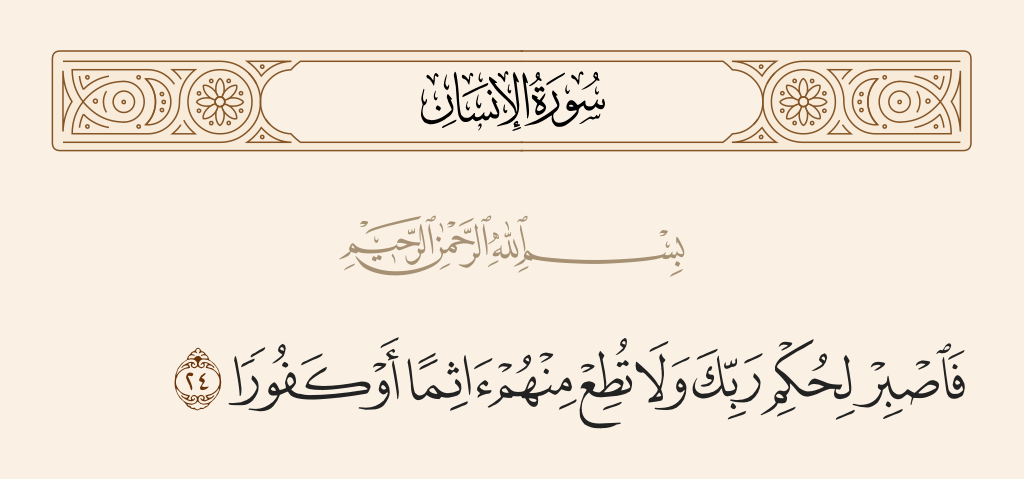 سُورَةُ الإِنسَانِ
بِسْمِ ٱللَّهِ ٱلرَّحْمَٰنِ ٱلرَّحِيمِ
فَٱصْبِرْ لِحُكْمِ رَبِّكَ وَلَا تُطِعْ مِنْهُمْ ءَاثِمًا أَوْ كَفُورًا ٢٤